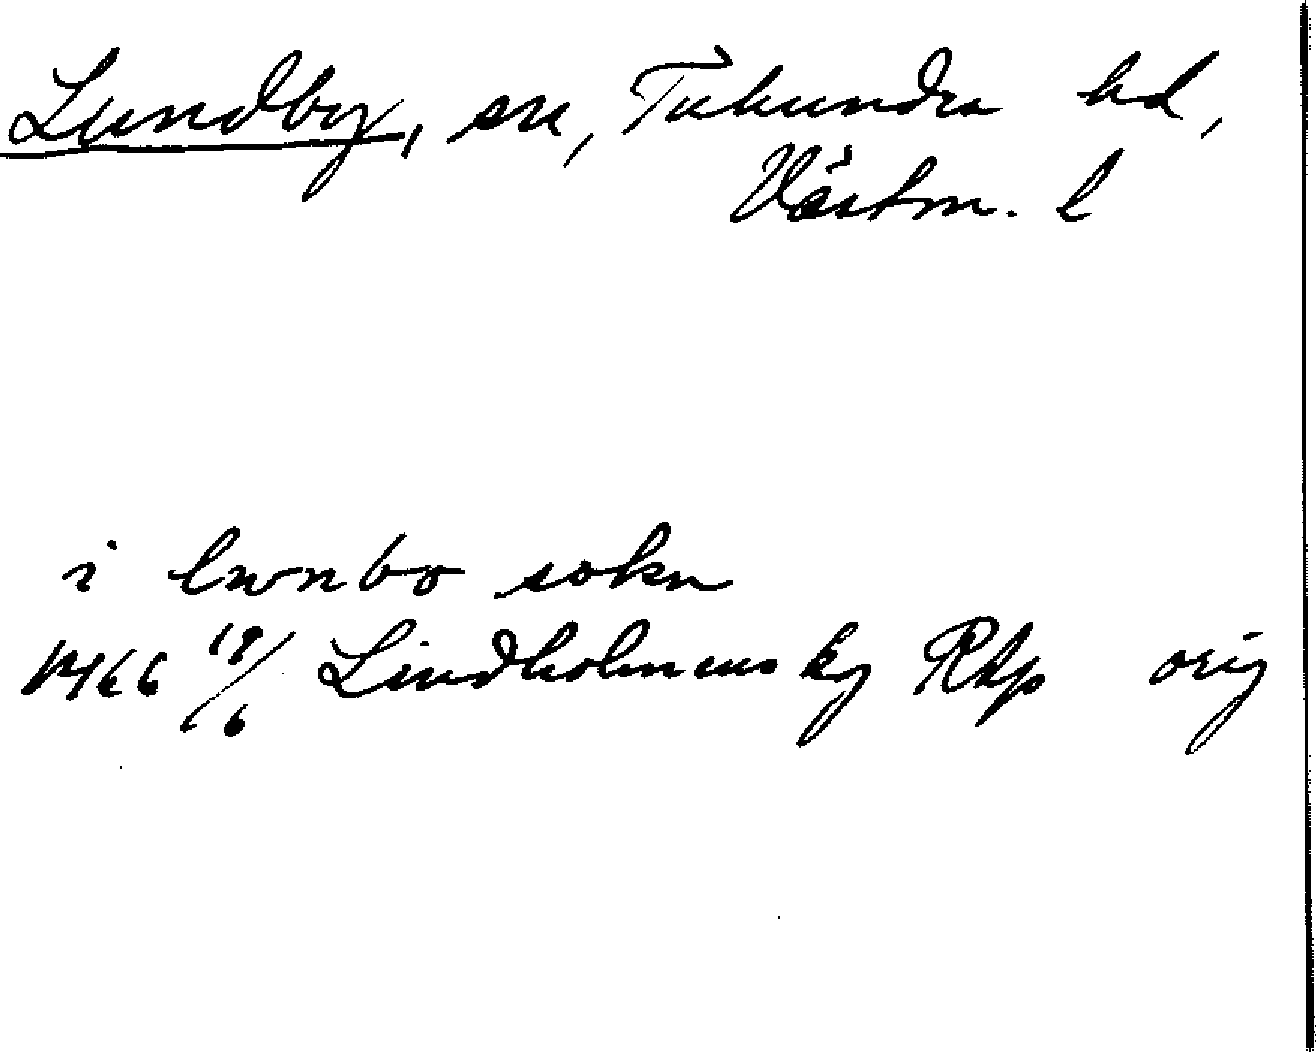 Lundby, sn, Tuhundra hd,
Västm. l
i lwnbo sokn
1466 19/6 Lindholmens kg Rkp orig